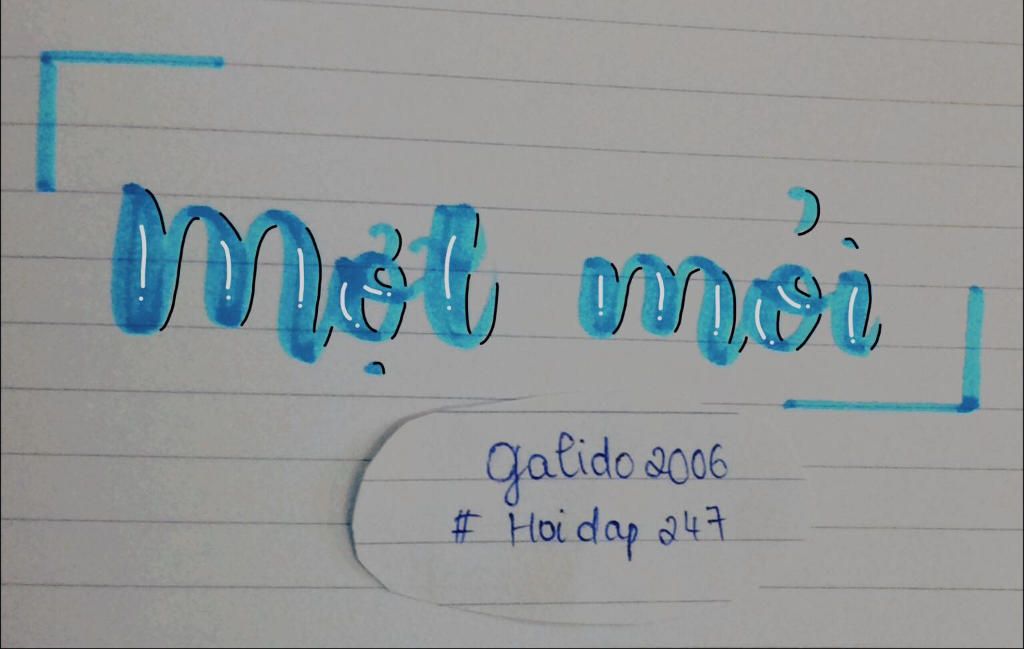 Mệt mỏi
Galido 2006
# Hoidap 247